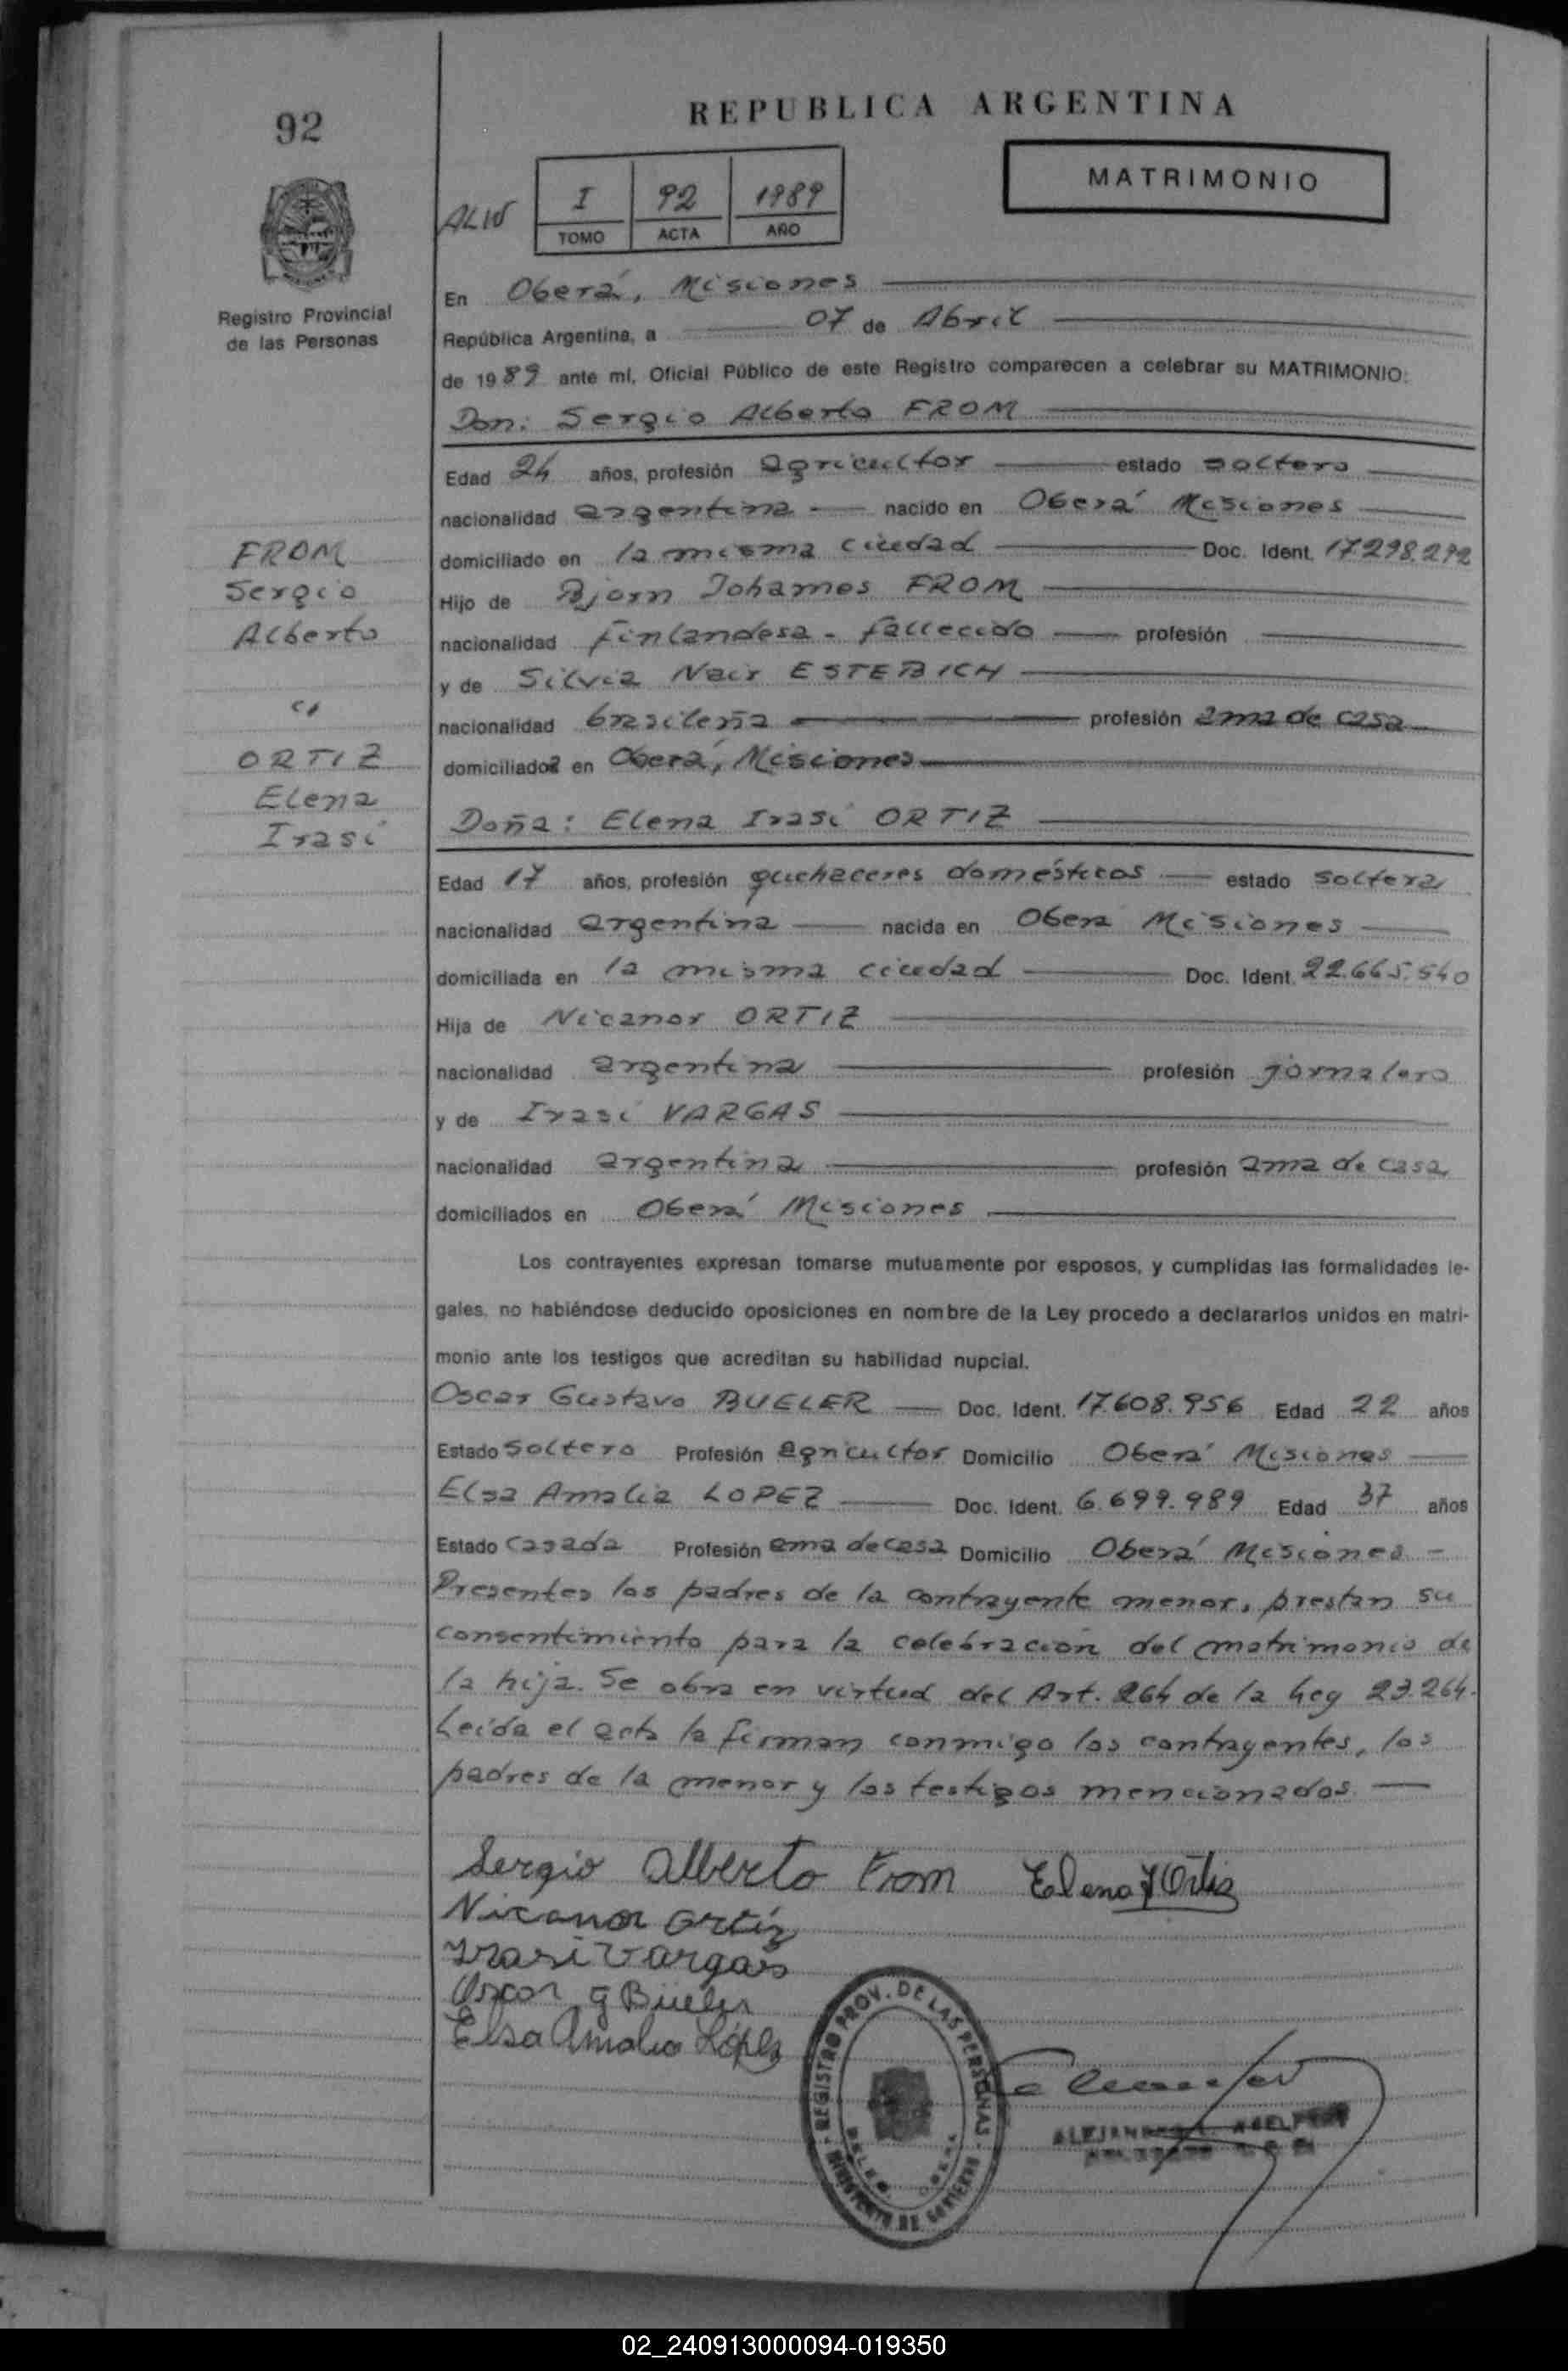 92
REPUBLICA ARGENTINA
MATRIMONIO
I 92 1989
TOMO ACTA AÑO
Registro Provincial
de las Personas
En Oberá, Misiones
República Argentina, a 07 de Abril
de 1989 ante mí, Oficial Público de este Registro comparecen a celebrar su MATRIMONIO:
Don: Sergio Alberto FROM
Edad 24 años, profesión agricultor estado soltero
nacionalidad argentina nacido en Oberá Misiones
domiciliado en la misma ciudad Doc. Ident. 17.298.292
Hijo de Bjorn Johamos FROM
nacionalidad finlandesa - fallecido profesión
y de Silvia Nair ESTEBICH
nacionalidad brasileña profesión ama de casa
domiciliados en Oberá, Misiones
FROM
Sergio
Alberto
c/
ORTIZ
Elena
Irasi
Doña: Elena Irasi ORTIZ
Edad 17 años, profesión quehaceres domésticos estado soltera
nacionalidad argentina nacida en Oberá Misiones
domiciliada en la misma ciudad Doc. Ident. 22.665.540
Hija de Nicanor ORTIZ
nacionalidad argentina profesión jornalero
y de Irasi VARGAS
nacionalidad argentina profesión ama de casa
domiciliados en Oberá Misiones
Los contrayentes expresan tomarse mutuamente por esposos, y cumplidas las formalidades le-
gales, no habiéndose deducido oposiciones en nombre de la Ley procedo a declararlos unidos en matri-
monio ante los testigos que acreditan su habilidad nupcial.
Oscar Gustavo BUELER Doc. Ident. 17.608.956 Edad 22 años
Estado soltero Profesión agricultor Domicilio Oberá Misiones
Elsa Amalia LOPEZ Doc. Ident. 6.699.989 Edad 37 años
Estado casada Profesión ama de casa Domicilio Oberá Misiones -
Presentes los padres de la contrayente menor, prestan su
consentimiento para la celebración del matrimonio de
la hija. Se obra en virtud del Art. 264 de la Ley 23.264.
Leída el acta la firman conmigo los contrayentes, los
padres de la menor y los testigos mencionados.
Sergio Alberto From Elena Y Ortiz
Nicanor Ortíz
Irasi Vargas
Oscar G Bueler
Elsa Amalia López
REGISTRO PROV. DE LAS PERSONAS
MINISTERIO DE GOBIERNO
02_240913000094-019350